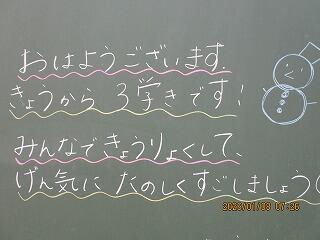 おはようございます.
きょうから 3学きです!
みんなできょうりょくして、
げん気に たのしくすごしましょう